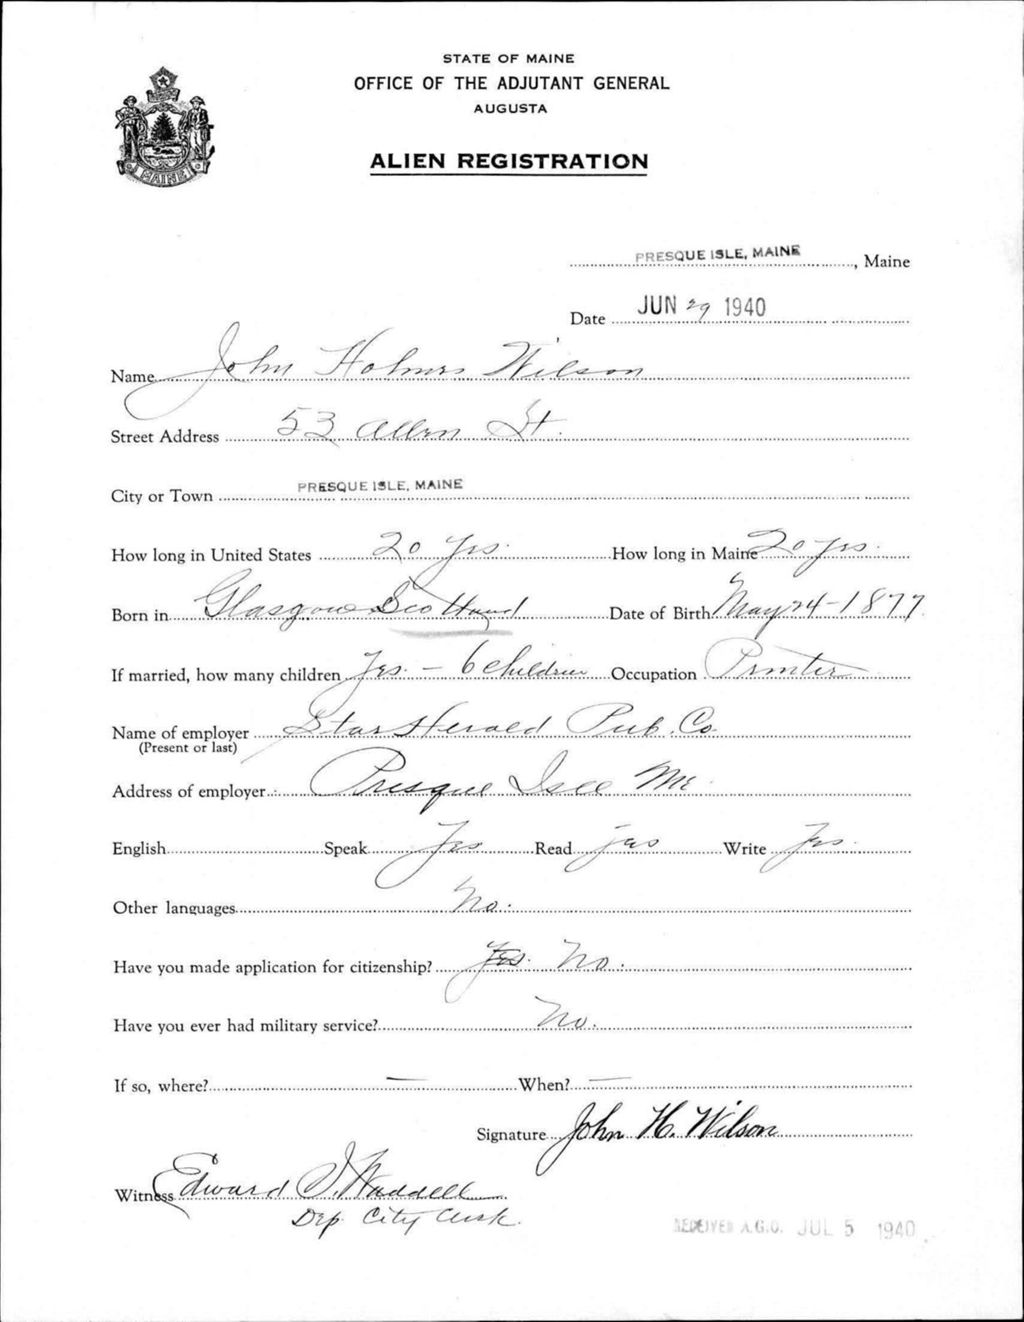 STATE OF MAINE
OFFICE OF THE ADJUTANT GENERAL
AUGUSTA
ALIEN REGISTRATION
MAINE
PRESQUE ISLE, MAINE, Maine
Date JUN 29 1940
Name John Holmes Wilson
Street Address 53 Allen St.
City or Town PRESQUE ISLE, MAINE
How long in United States 20 yrs. How long in Maine 20 yrs.
Born in Glasgow Scotland Date of Birth May 24-1877
If married, how many children Yes. - 6 children Occupation Printer
Name of employer Star Herald Pub. Co.
(Present or last)
Address of employer Presque Isle Me.
English Speak Yes Read yes Write Yes.
Other languages No.
Have you made application for citizenship? Yes. No.
Have you ever had military service? No.
If so, where? — When? —
Signature John H. Wilson
Witness Edward J. Waddell
Dep. City Clerk.
RECEIVED A.G.O. JUL 5 1940